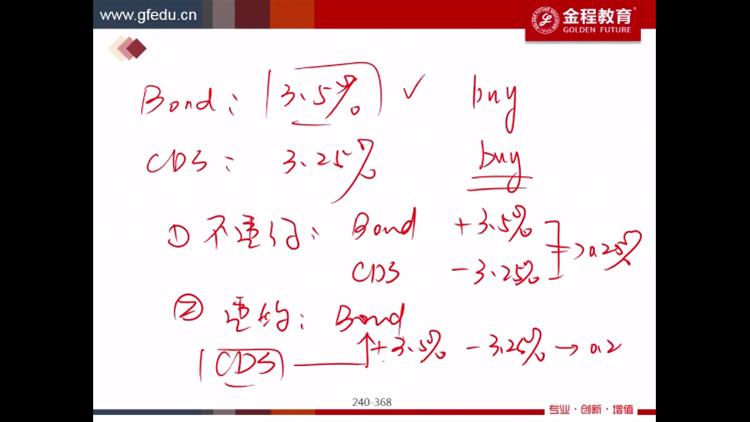 www.gfedu.cn
金程教育
GOLDEN FUTURE
Bond: 3.5% ✓ buy
CDS: 3.25% buy
① 不违约: Bond +3.5%
CDS -3.25% → 0.25%
② 违约: Bond
CDS +3.5% -3.25% → 0.2
240-368
专业·创新·增值